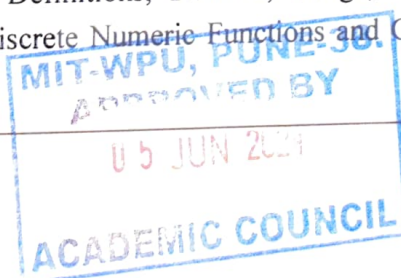 Definitions,
Discrete Numeric Functions and
MIT-WPU, PUNE-38.
APPROVED BY
05 JUN
ACADEMIC COUNCIL